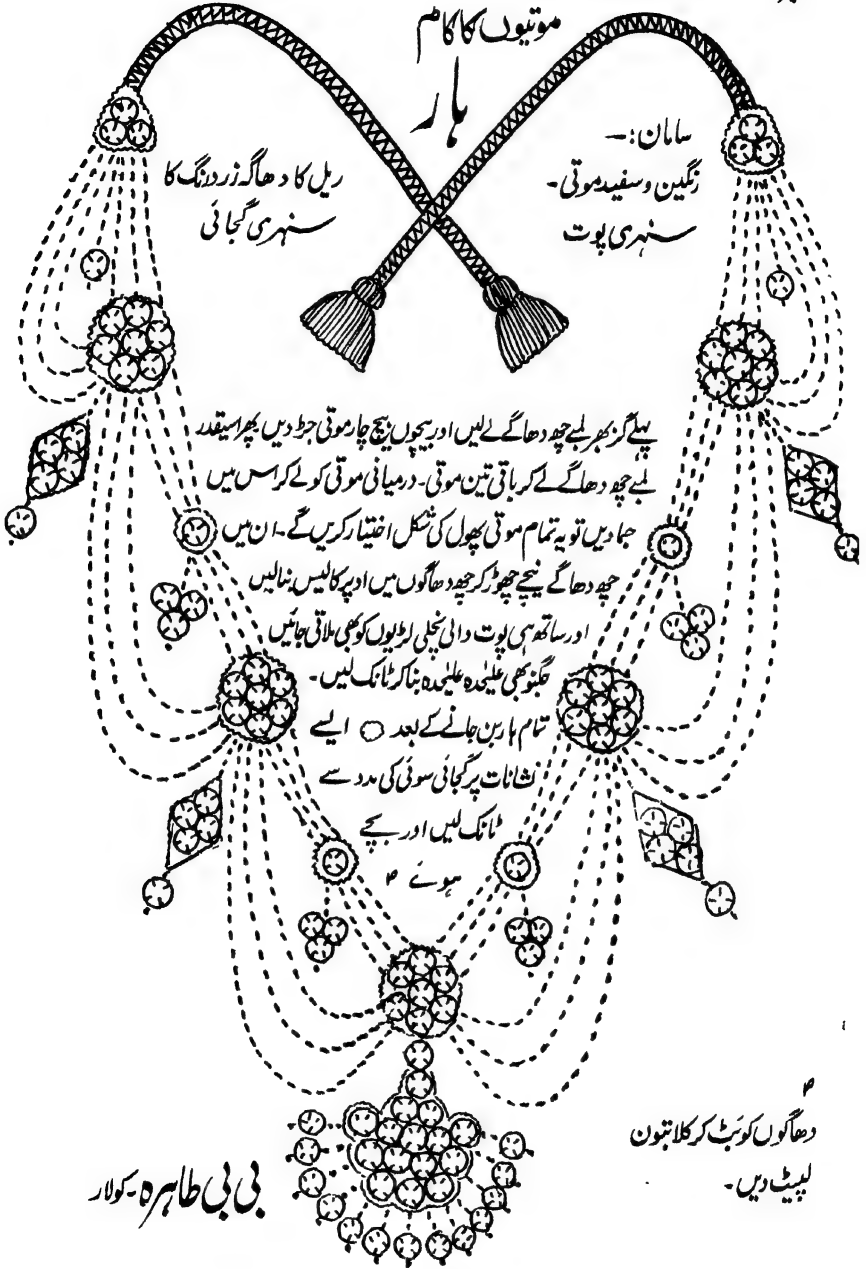 موتیوں کا کام
ہار
سامان:—
رنگین و سفید موتی۔
سنہری پوت
ریل کا دھاگہ زرد رنگ کا
سنہری گجائی
پہلے گز بھر لمبے چھ دھاگے لیں اور بیچوں بیچ چار موتی جڑ دیں پھر اسیقدر
لمبے چھ دھاگے لے کر باقی تین موتی۔ درمیانی موتی کو لے کر اس میں
جما دیں تو یہ تمام موتی پھول کی شکل اختیار کریں گے۔ ان میں
چھ دھاگے نیچے چھوڑ کر چھ دھاگوں میں اوپر کا لیس بنالیں
اور ساتھ ہی پوت والی نچلی لڑیوں کو بھی ملاتی جائیں
جگنو بھی علیٰحدہ علیٰحدہ بنا کر ٹانک لیں۔
تمام ہار بن جانے کے بعد ایسے
نشانات پر گجائی سوئی کی مدد سے
ٹانک لیں اور بچے
ہوئے ۴
۴
دھاگوں کو بٹ کر کلابتون
لپیٹ دیں۔
بی بی طاہرہ۔ کولار